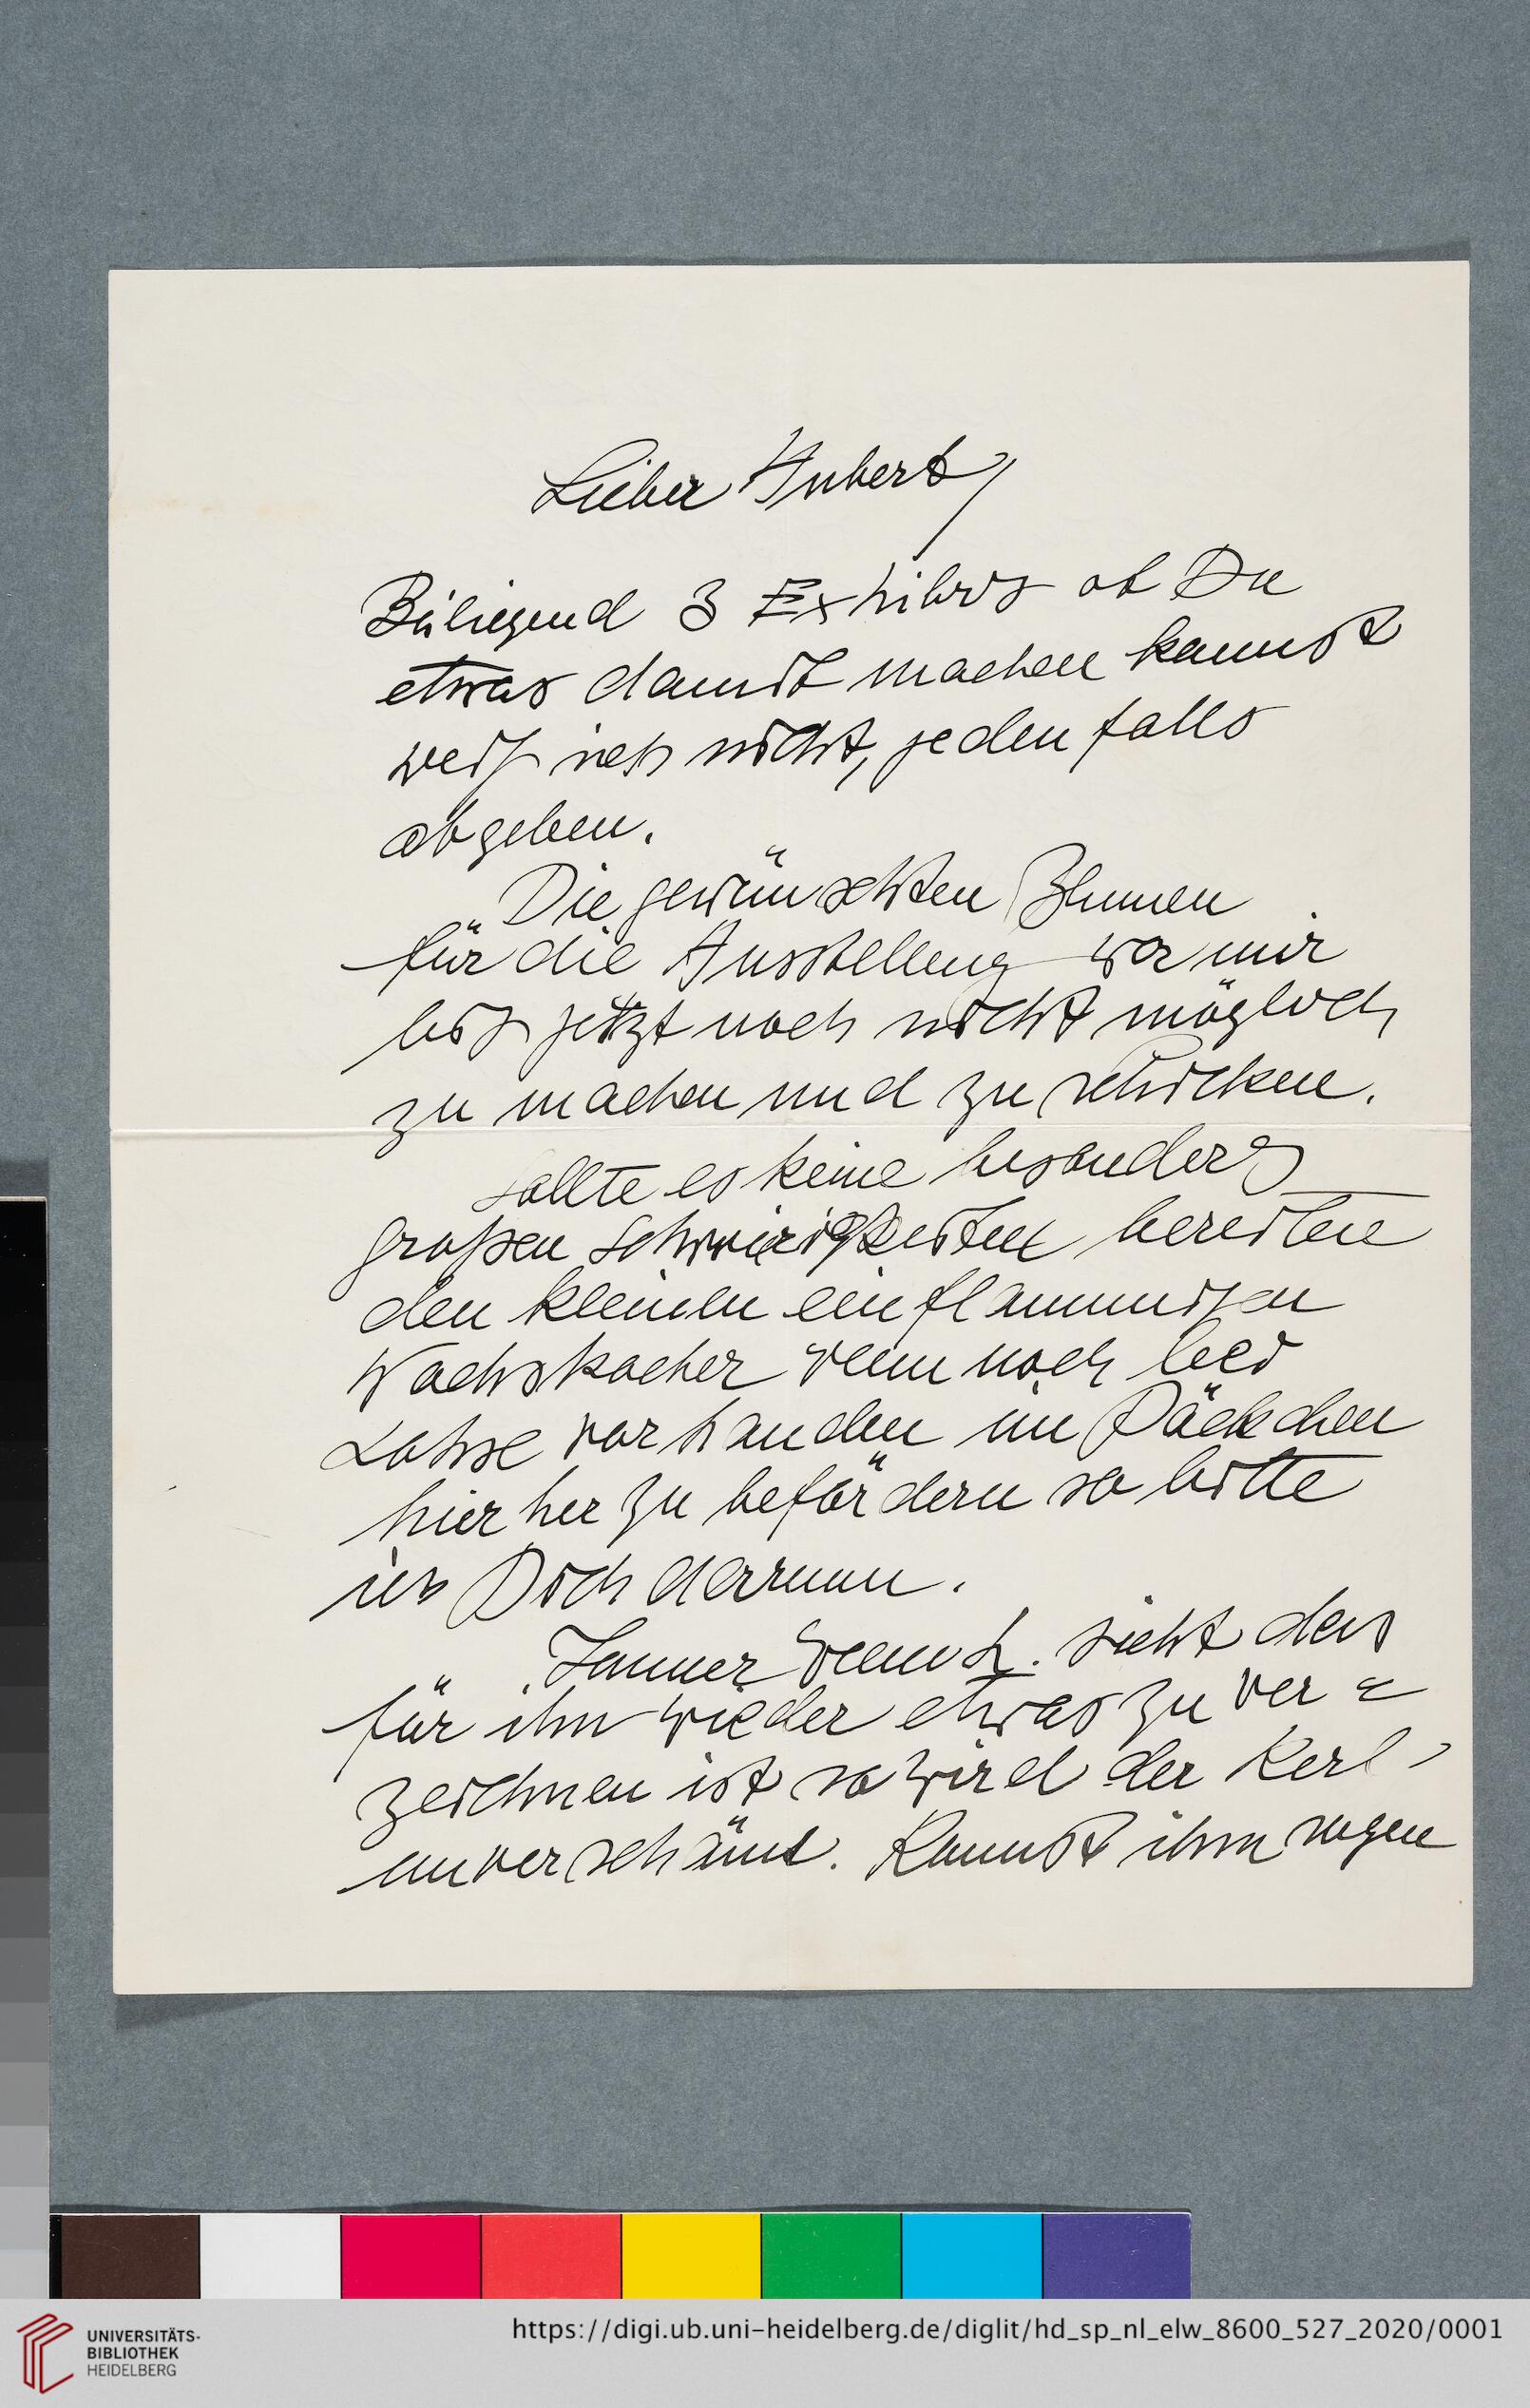 Lieber Hubert,
Beiliegend 3 Exlibris ob Du
etwas damit machen kannst
weiß ich nicht, jedenfalls
abgeben.
Die gewünschten Blumen
für die Ausstellung war mir
bis jetzt noch nicht möglich
zu machen und zu schicken.
sollte es keine besonders
großen Schwierigkeiten bereiten
den kleinen einflammigen
Wachskocher wenn noch bei
Lohse vorhanden im Päckchen
hierher zu befördern so bitte
ich Dich darum.
Immer wenn H. sieht das
für ihn wieder etwas zu ver=
zeichnen ist so wird der Kerl
unverschämt. Kannst ihm sagen
UNIVERSITÄTS-
BIBLIOTHEK
HEIDELBERG
https://digi.ub.uni-heidelberg.de/diglit/hd_sp_nl_elw_8600_527_2020/0001